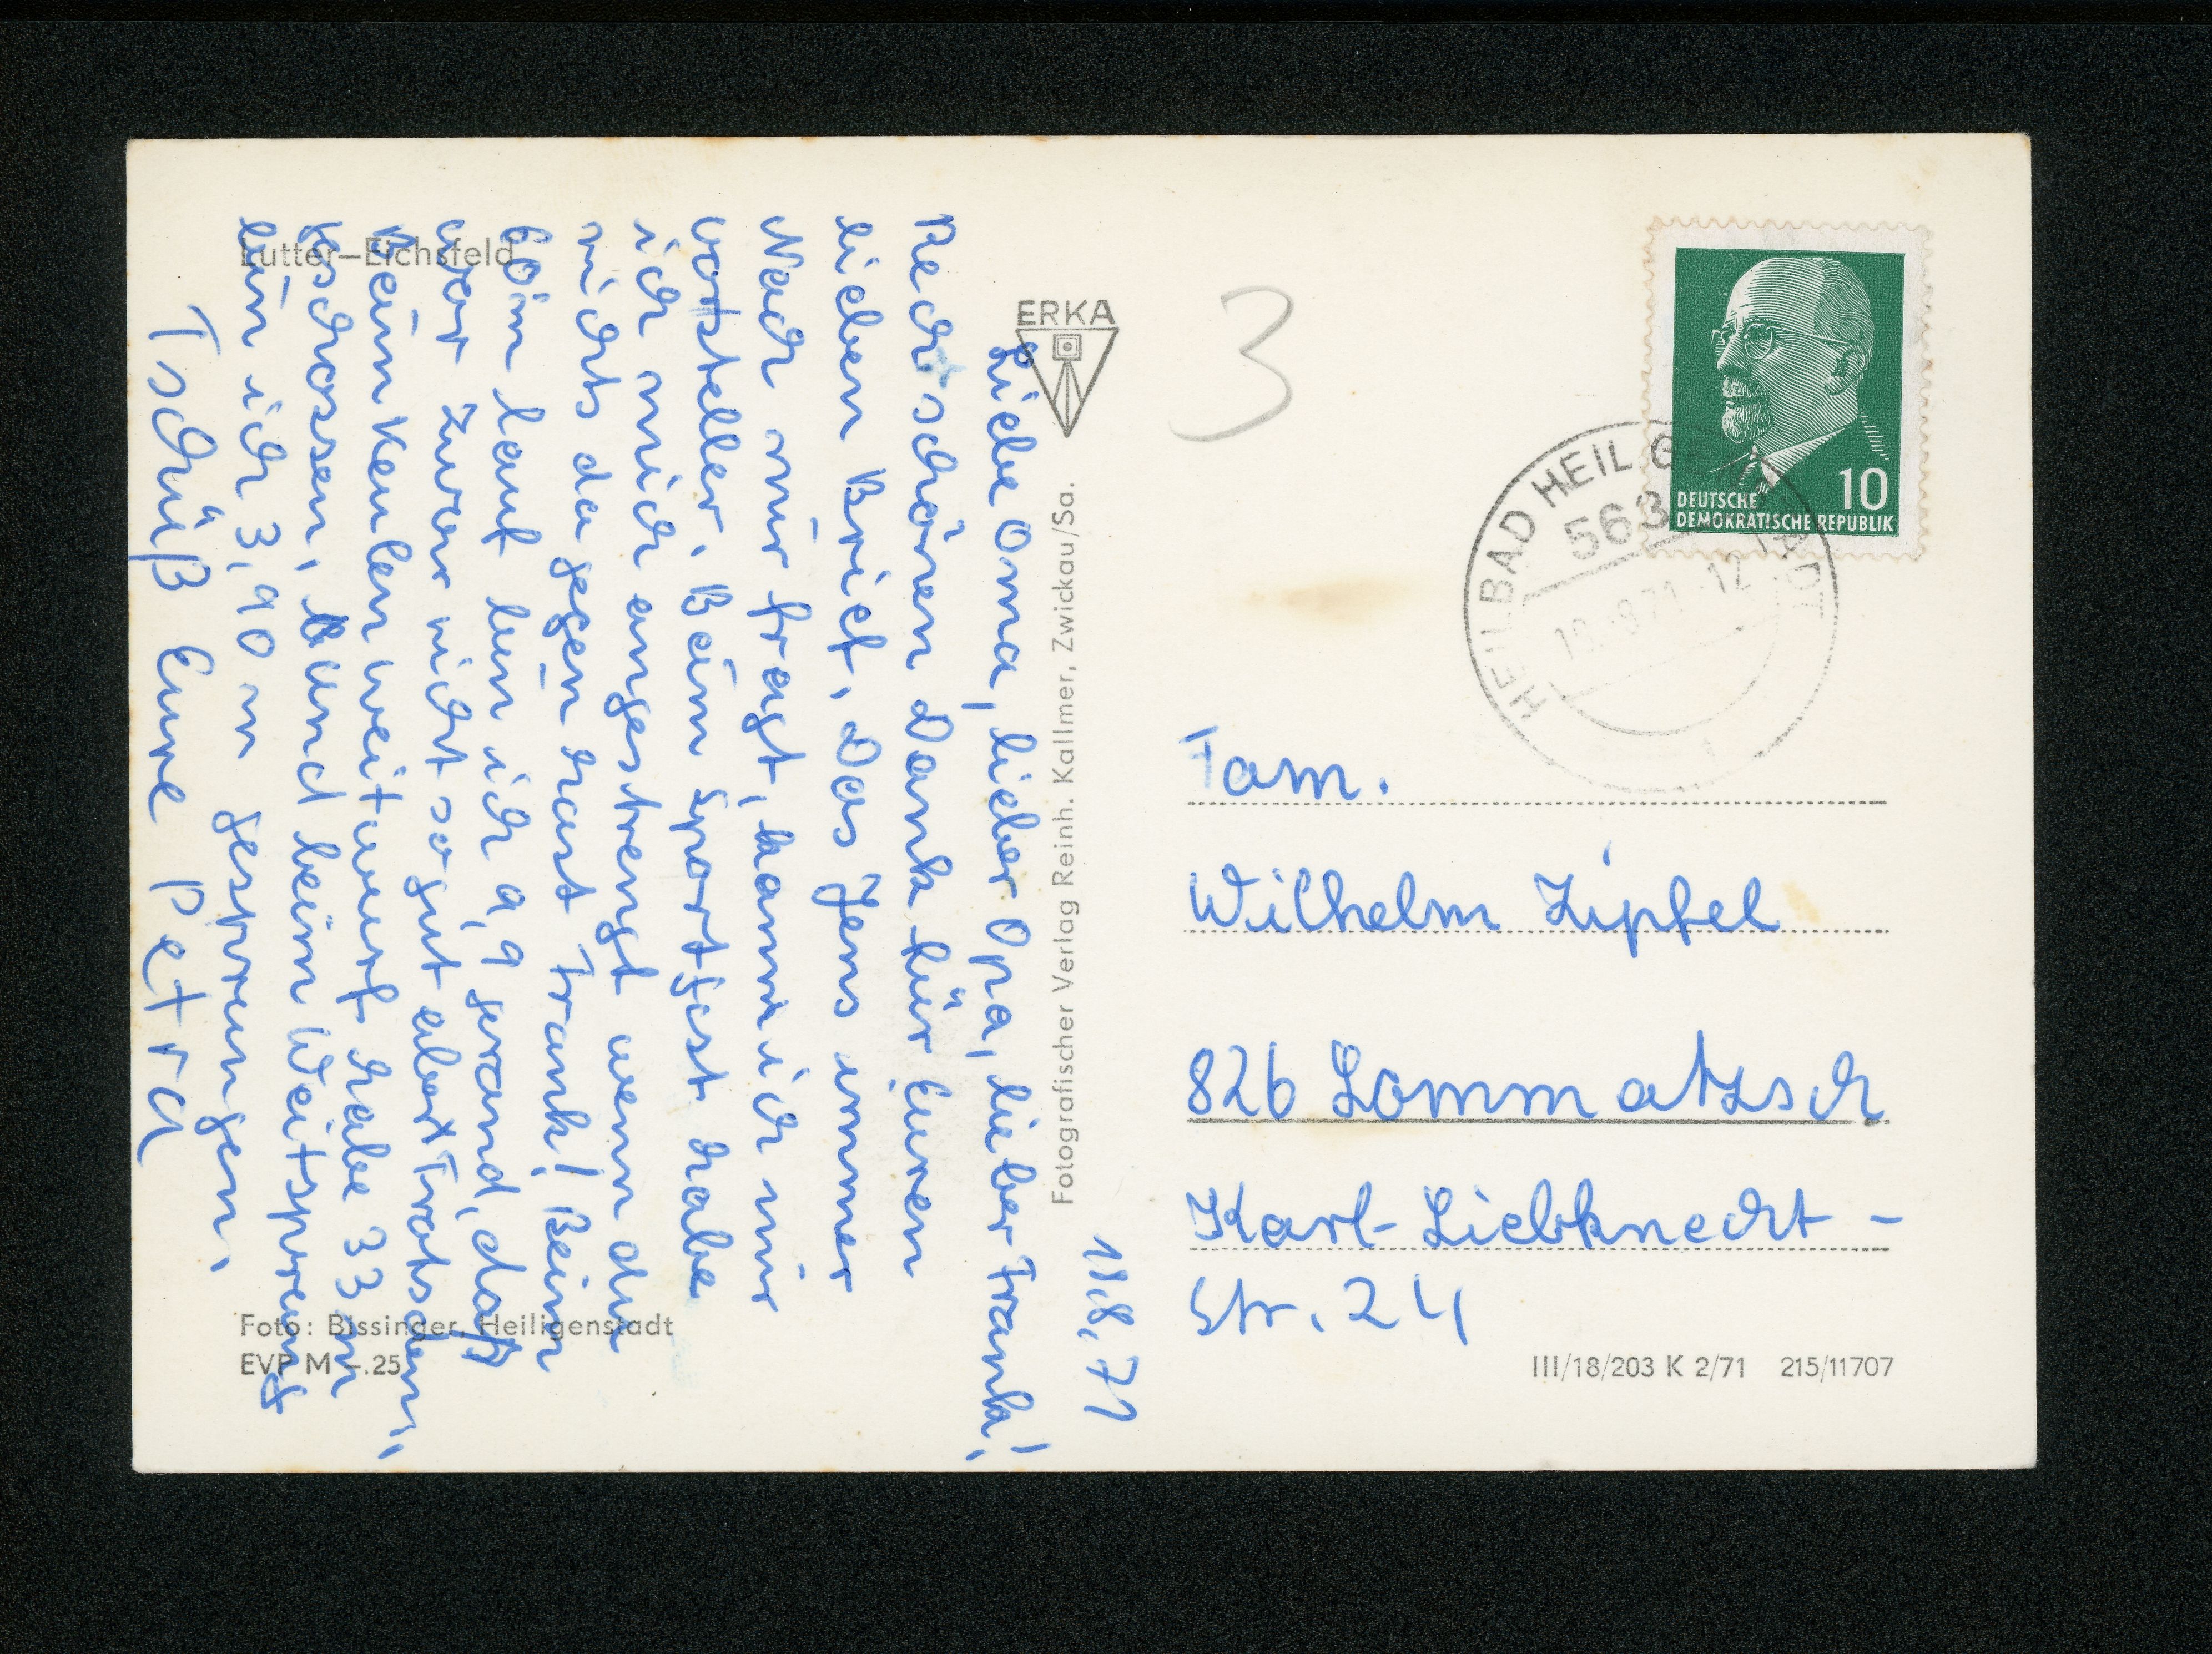 Lutter—Eichsfeld
18.8.71
Liebe Oma, lieber Opa, lieber Frank!
Recht schönen Dank für Euren
lieben Brief. Das Jens immer
Nach mir fragt, kann ich mir
vorstellen. Beim Sportfest habe
ich mich angestrengt wenn du
nichts dagegen hast Frank! Beim
60m lauf bin ich 9,9 gerand, daß
war zwar nicht so gut aber trotsdem,
beim Keulenweitwurf habe 33 m
geschossen, und beim Weitsprung
bin ich 3,90 m gesprungen.
Tschüß Eure Petra
ERKA
Fotografischer Verlag Reinh. Kallmer, Zwickau/Sa.
Foto: Bissinger, Heiligenstadt
EVP M —.25
3
DEUTSCHE
DEMOKRATISCHE REPUBLIK
10
HEILBAD HEILIGENSTADT
563
71-12
Fam.
Wilhelm Zipfel
826 Lommatzsch
Karl-Liebknecht-
Str. 24
III/18/203 K 2/71 215/11707